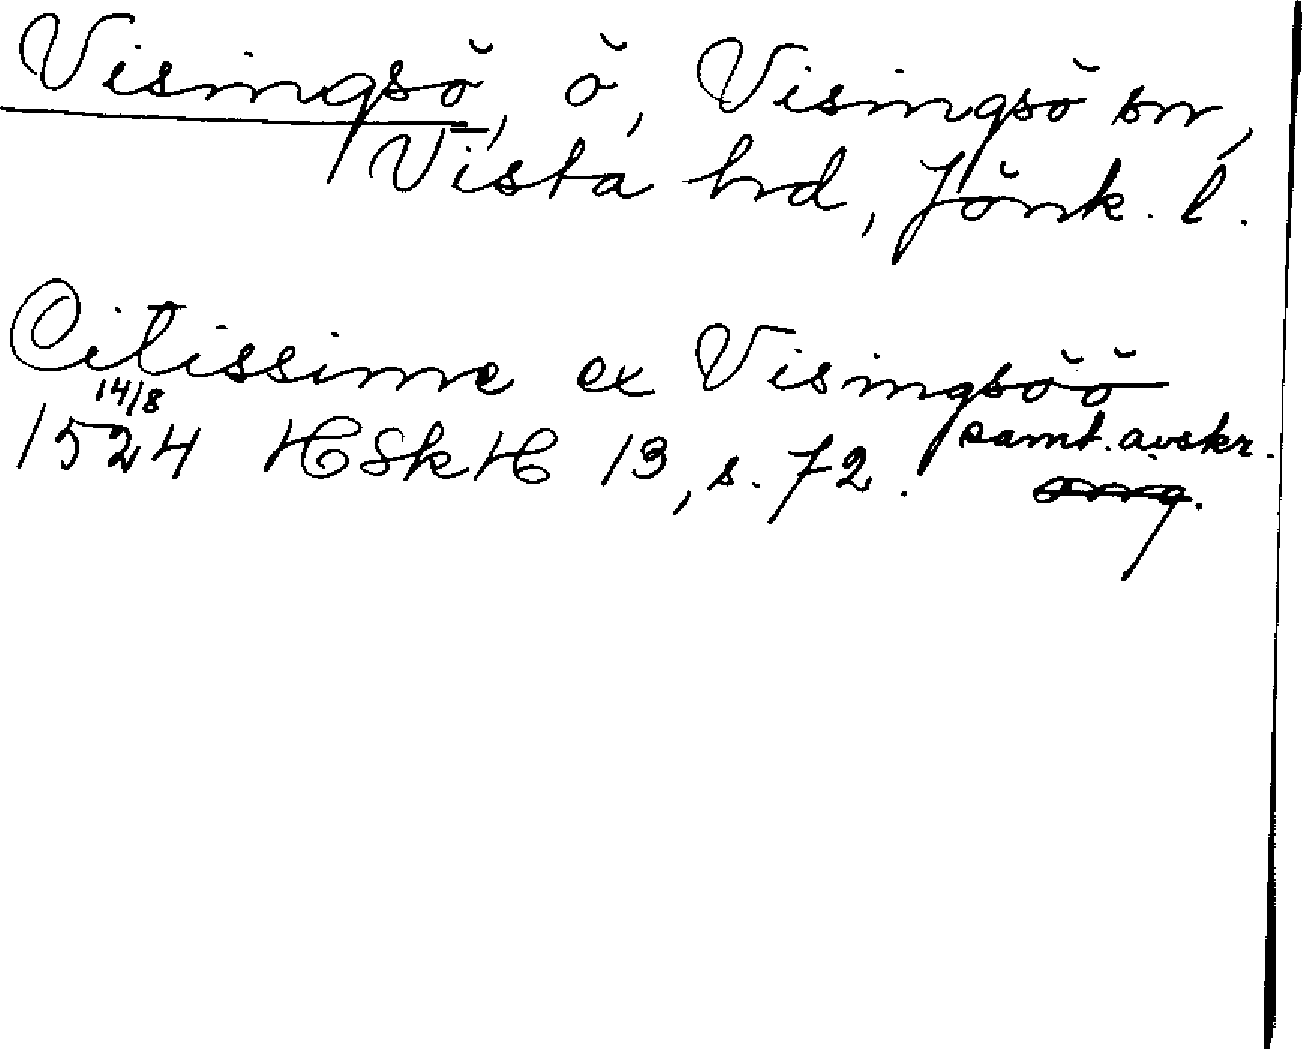 Visingsö, ö, Visingsö sn,
Vista hd, Jönk. l.
Citissime ex Visingsöö
1524 14/8 HSkH 13, s. 72. samt. avskr.